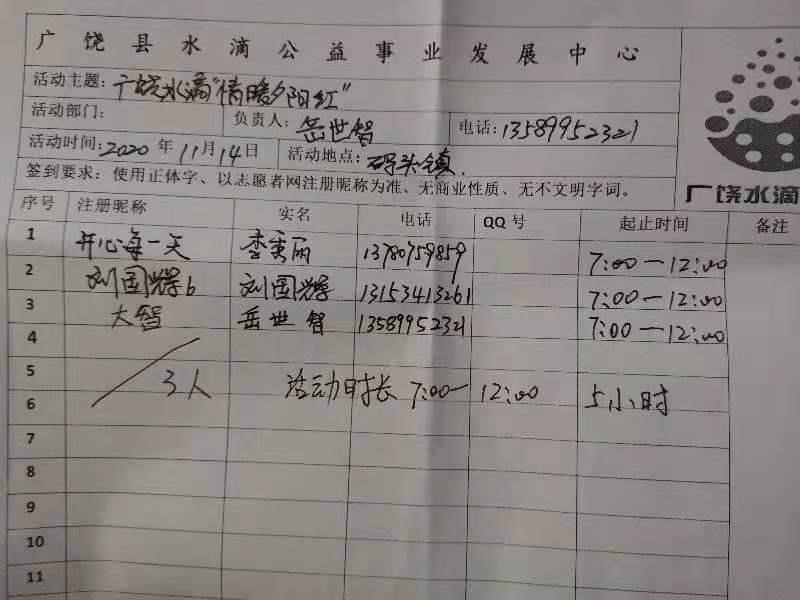 广饶县水滴公益事业发展中心
活动主题：广饶水滴"情暖夕阳红"
活动部门： 负责人：岳世智 电话：13589952321
活动时间：2020 年 11 月 14 日 活动地点：码头镇.
签到要求：使用正体字、以志愿者网注册昵称为准、无商业性质、无不文明字词。
广饶水滴
序号 注册昵称 实名 电话 QQ 号 起止时间 备注
1 开心每一天 李秀丽 13780759859 7:00—12:00
2 刘国辉6 刘国辉 13153413261 7:00—12:00
3 大智 岳世智 13589952321 7:00—12:00
4
5 3人 活动时长 7:00— 12:00 5小时
6
7
8
9
10
11